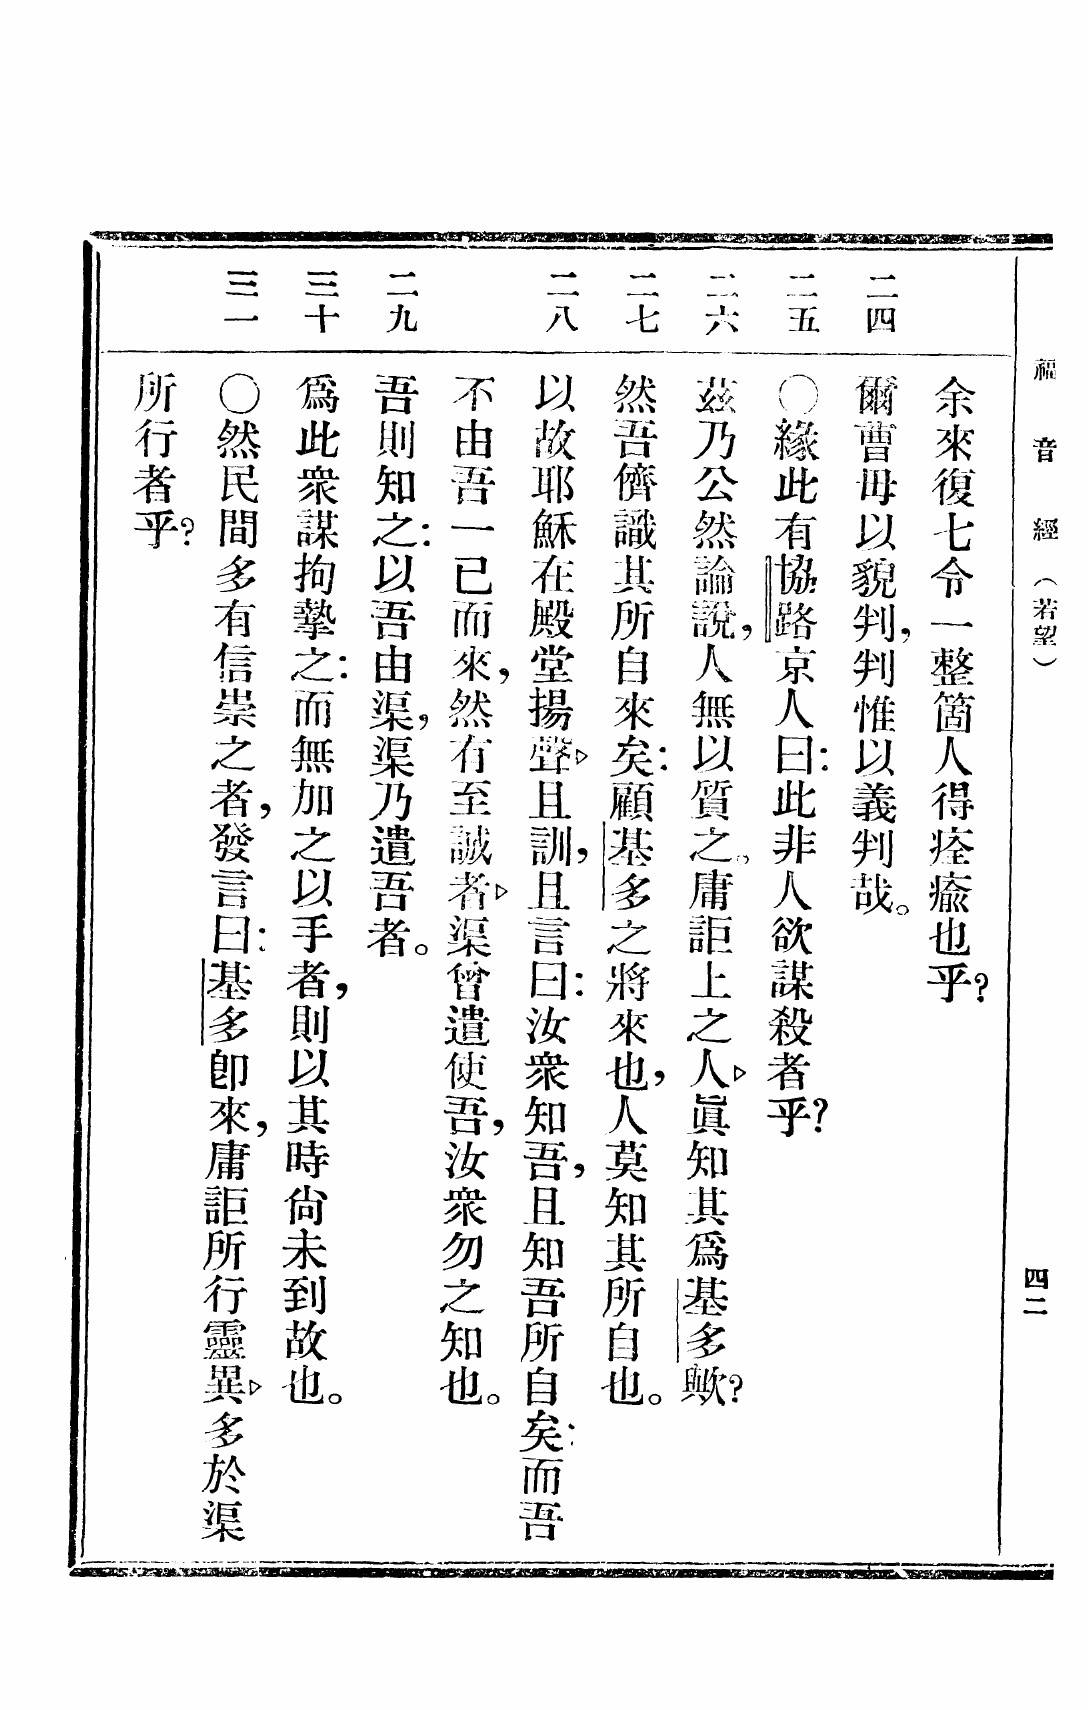 福音經（若望）
四二
余來復七令一整箇人得痊瘉也乎?
二四
爾曹毋以貌判,判惟以義判哉。
二五
〇緣此有協路京人曰:此非人欲謀殺者乎?
二六
茲乃公然論說,人無以質之。庸詎上之人▷眞知其爲基多歟?
二七
然吾儕識其所自來矣:顧基多之將來也,人莫知其所自也。
二八
以故耶穌在殿堂揚聲▷且訓,且言曰:汝衆知吾,且知吾所自矣:而吾
不由吾一己而來,然有至誠者▷渠曾遣使吾,汝衆勿之知也。
二九
吾則知之:以吾由渠,渠乃遣吾者。
三十
爲此衆謀拘摯之:而無加之以手者,則以其時尙未到故也。
三一
〇然民間多有信崇之者,發言曰:基多卽來,庸詎所行靈異▷多於渠
所行者乎?